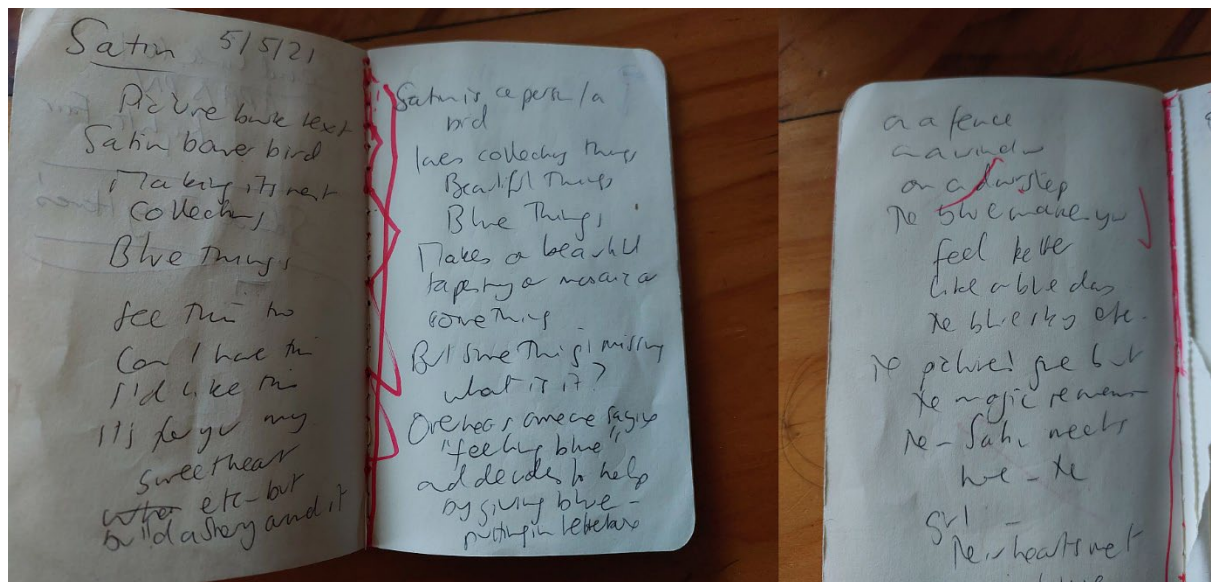 Satin 5/5/21
Picture book text
Satin bower bird
Making its nest
collecting
Blue Things
See this too
Can I have this
I'd like this
It's for you my
sweetheart
etc - but
build a story around it
Satin is a person / a
bird
loves collecting things
Beautiful Things
Blue Things
Makes a beautiful
tapestry or mosaic or
something
But something's missing
what is it?
Overhears someone saying
"feeling blue"
and decides to help
by giving blue -
putting in letterbox
on a fence
on a window
on a doorstep
The blue makes you
feel better
like a blue day
the blue sky etc.
The picture's gone but
the magic remains
The - Satin meets
the
girl -
Their hearts met